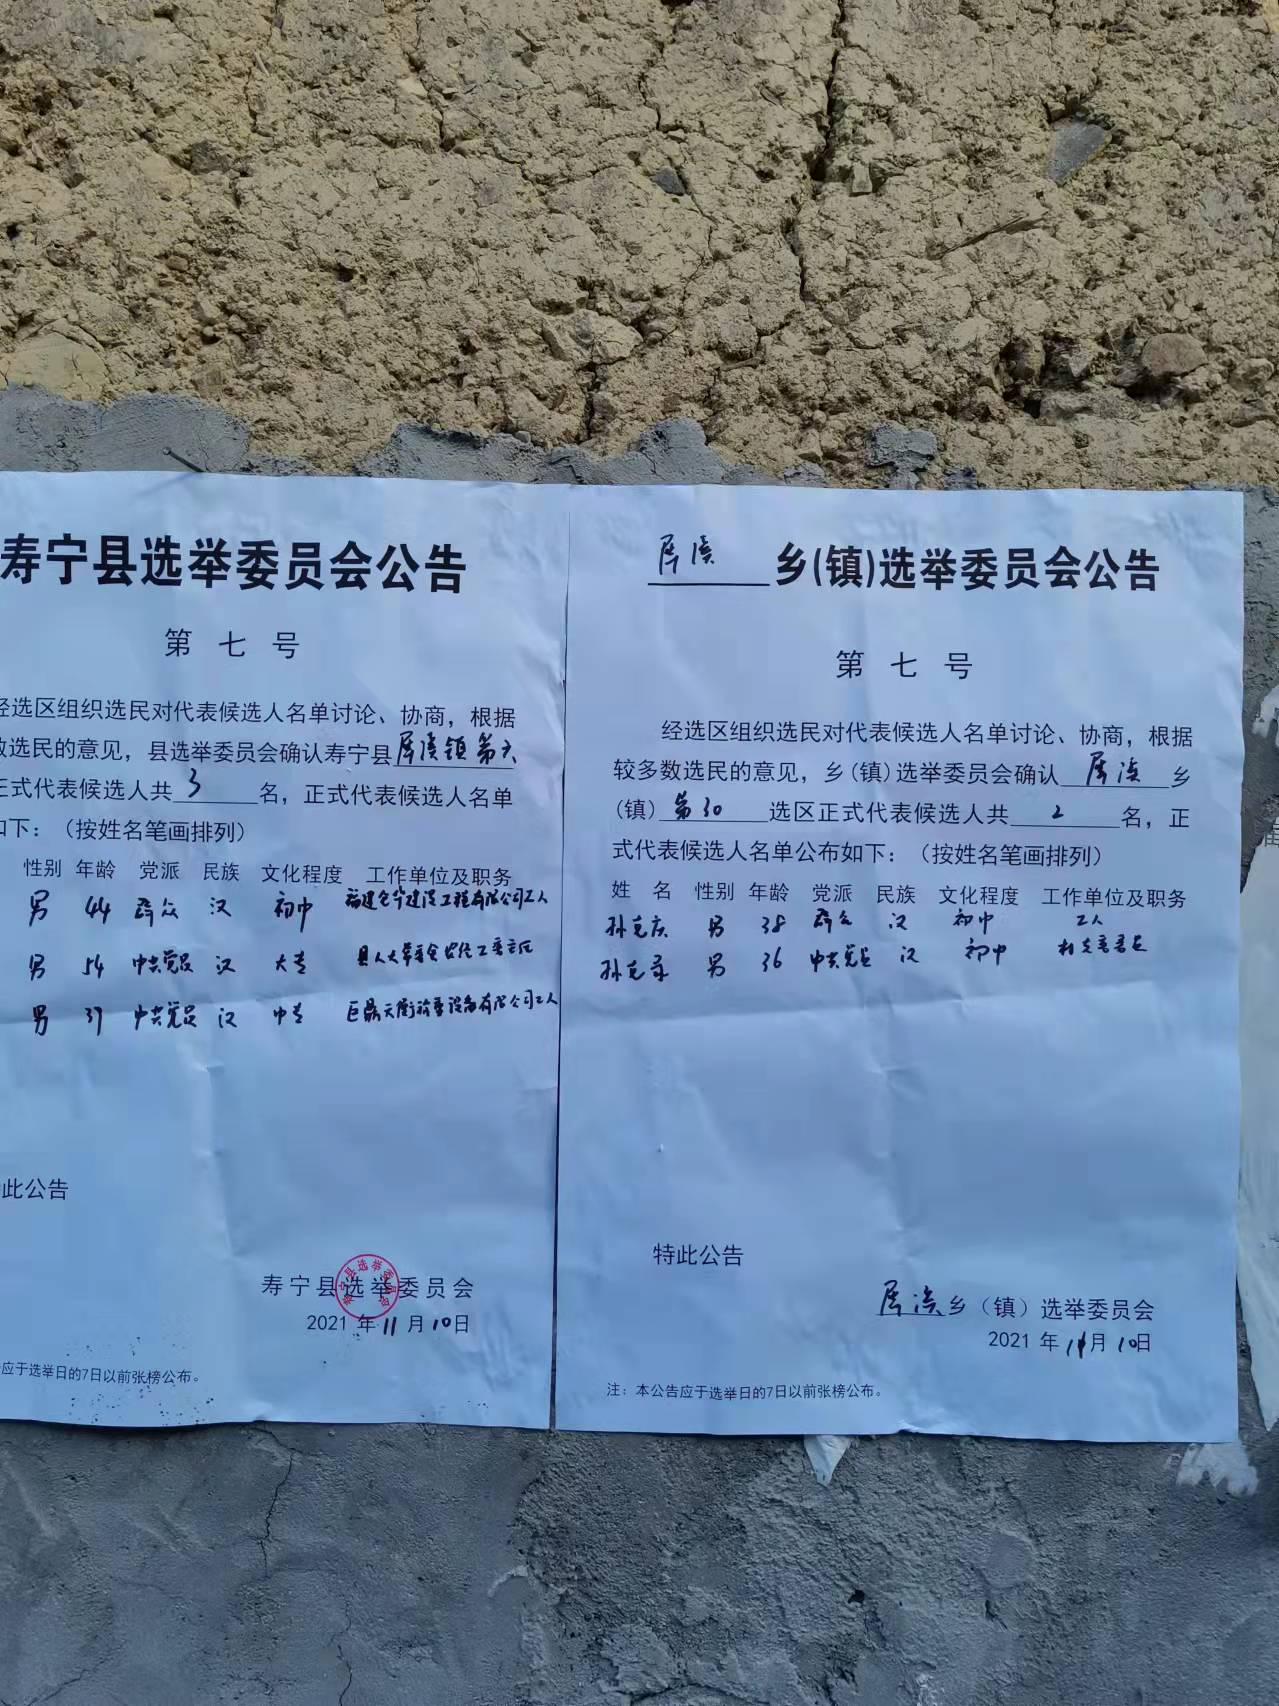 寿宁县选举委员会公告
第 七 号
经选区组织选民对代表候选人名单讨论、协商，根据
数选民的意见，县选举委员会确认寿宁县 犀溪镇第六
正式代表候选人共 3 名，正式代表候选人名单
如下：（按姓名笔画排列）
性别 年龄 党派 民族 文化程度 工作单位及职务
男 44 群众 汉 初中 福建 建设工程有限公司工人
男 54 中共党员 汉 大专 县人大常委会 工委主任
男 37 中共党员 汉 中专 巨鼎天衡 设备有限公司工人
此公告
寿宁县选举委员会
寿宁县选举委员会
2021 年 11 月 10 日
应于选举日的7日以前张榜公布。
犀溪 乡(镇)选举委员会公告
第 七 号
经选区组织选民对代表候选人名单讨论、协商，根据
较多数选民的意见，乡(镇)选举委员会确认 犀溪 乡
(镇) 第30 选区正式代表候选人共 2 名，正
式代表候选人名单公布如下：（按姓名笔画排列）
姓 名 性别 年龄 党派 民族 文化程度 工作单位及职务
孙克庆 男 38 群众 汉 初中 工人
孙克 男 36 中共党员 汉 初中 村
特此公告
犀溪 乡（镇）选举委员会
2021 年 11月 10日
注：本公告应于选举日的7日以前张榜公布。